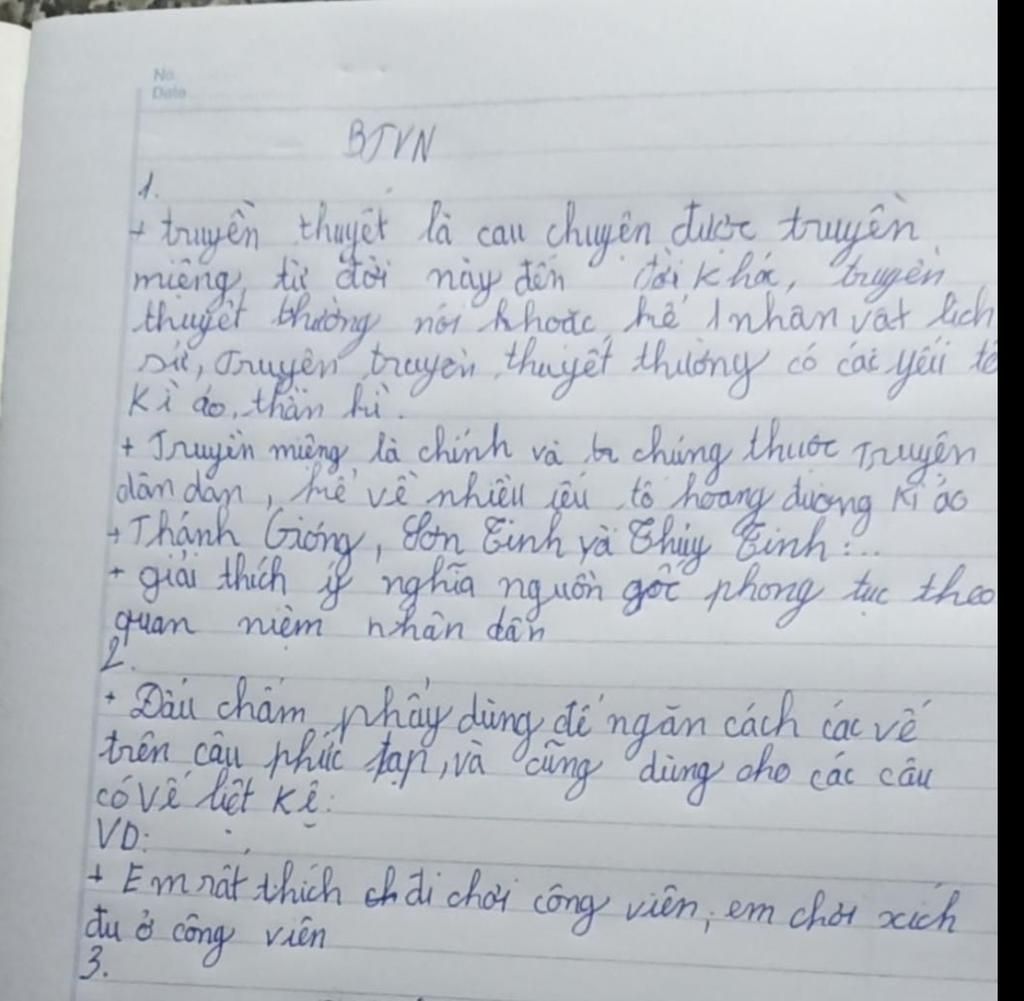 No.
Date
BTVN
1.
+ truyền thuyết là câu chuyện được truyền
miệng từ đời này đến đời khác, truyền
thuyết thường nói khoắc, kể 1 nhân vật lịch
sử, Truyện truyền thuyết thường có các yếu tố
kì ảo, thần kì.
+ Truyền miệng là chính và chúng thuộc Truyện
dân dan, kể về nhiều yếu tố hoang đường kì ảo
+ Thánh Gióng, Sơn Tinh và Thủy Tinh:..
+ giải thích ý nghĩa nguồn gốc phong tục theo
quan niệm nhân dân
2.
+ Dấu chấm phẩy dùng để ngăn cách các vế
trên câu phức tạp, và cũng dùng cho các câu
có vế liệt kê:
VD:
+ Em rất thích đi chơi công viên; em chơi xích
đu ở công viên
3.